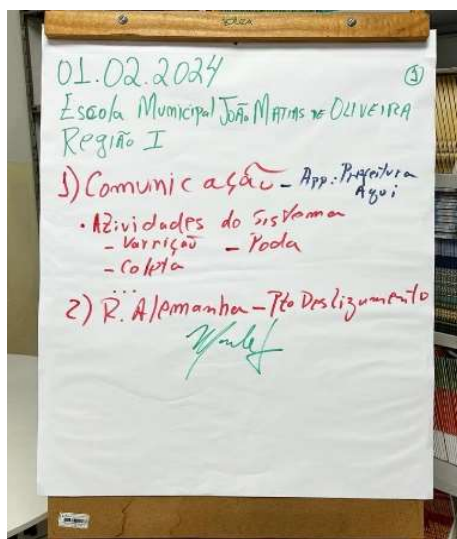 01.02.2024 ①
Escola Municipal João Matias de Oliveira
Região I
1) Comunicação - App: Prefeitura Aqui
• Atividades do Sistema
- Varrição - Poda
- Coleta
...
2) R. Alemanha - Pto Deslizamento